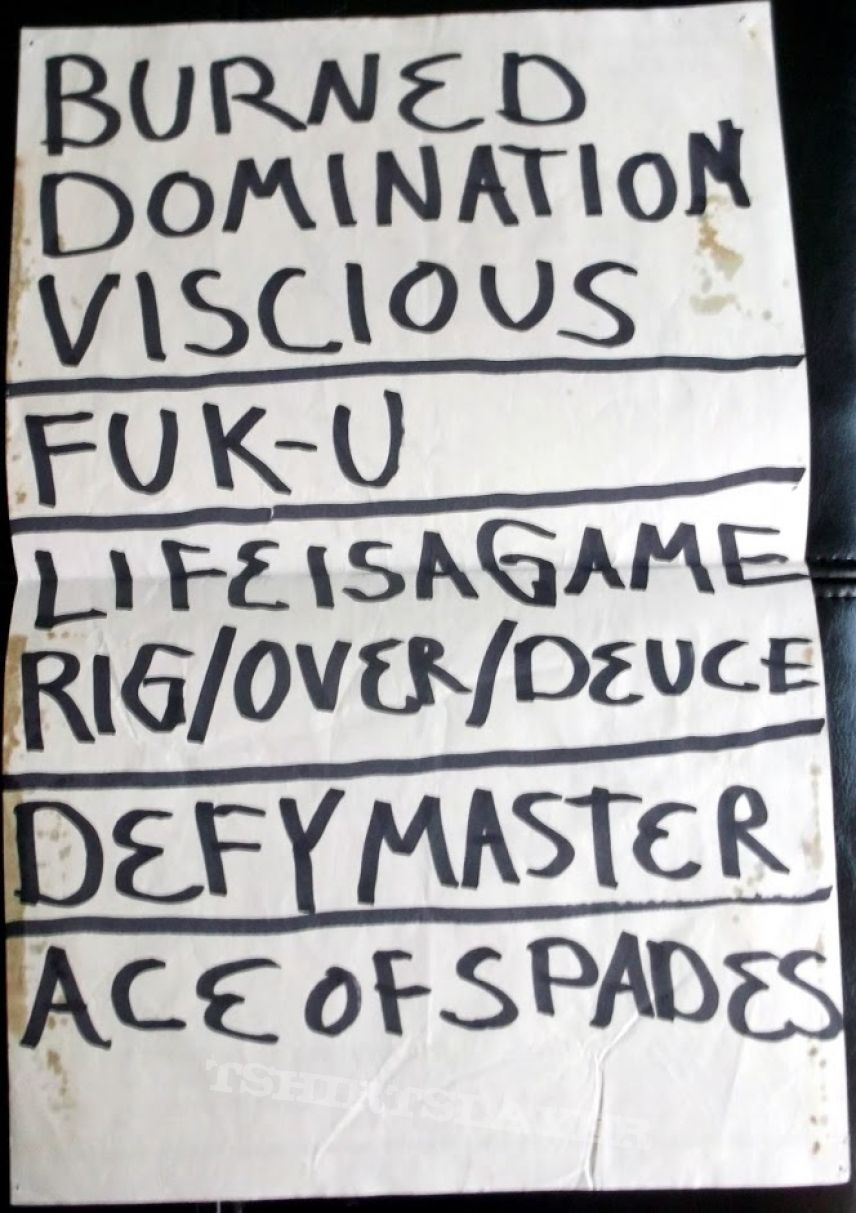 BURNED
DOMINATION
VISCIOUS
FUK-U
LIFE IS A GAME
RIG/OVER/DEUCE
DEFY MASTER
ACE OF SPADES
TSHIRTSLAYER